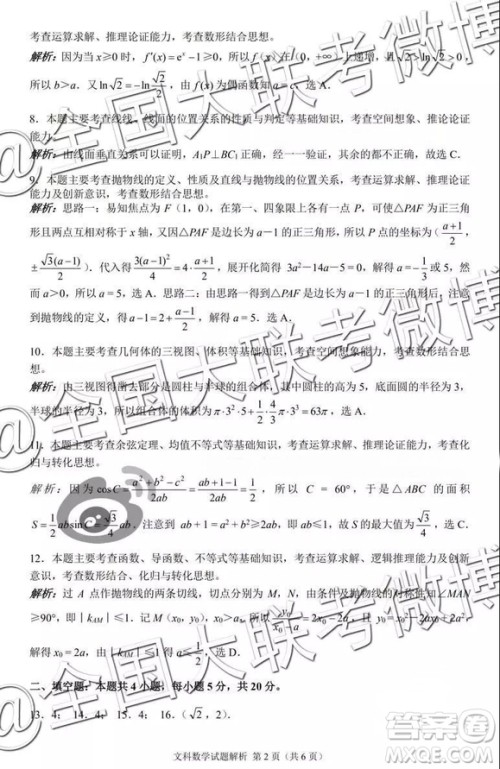 考查运算求解、推理论证能力，考查数形结合思想。
解析：因为当 x≥0 时，f′(x)=eˣ-1≥0，所以 f(x) 在 [0, 上递增，且√2>ln√2>0，
所以 b>a．又 ln√2=-ln(√2/2)，由 f(x) 为偶函数知 a=c，选 A．
8．本题主要考查线线、线面的位置关系的性质与判定等基础知识，考查空间想象、推论论证
能力．
解析：由线面垂直关系可以证，A₁P⊥BC₁ 正确，经一一验证，其余的都不正确，故选 C．
9．本题主要考查抛物线的定义、性质及直线与抛物线的位置关系，考查运算求解、推理论证
能力及创新意识，考查数形结合思想．
解析：思路一：易知焦点为 F（1，0），在第一、四象限上各有一点 P，可使△PAF 为正三角
形且两点互相对称于 x 轴，又因△PAF 为正三角形，所以 P 点的坐标为（(a+1)/2，
±√3(a-1)/2）．代入得 3(a-1)²/4=4·(a+1)/2，展开化简得 3a²-14a-5=0，解得 a=-1/3 或 5，然
而 a>0，所以 a=5，选 A．思路二：由思路一得到△PAF 是边长为 a-1 的正三角形后，注意
到抛物线的定义，可得 a-1=2+(a-1)/2，解得 a=5．选 A．
10．本题主要考查几何体的三视图、体积等基础知识，考查空间想象能力，考查数形结合思
想．
解析：由三视图可得 部分是圆柱与半球的组合体，其中圆柱的高为 5，底面圆的半径为 3，
半球的半径为 3，所以组合体的体积为 π·3²·5+1/2·4/3·π·3³=63π，选 A．
11．本题主要考查余弦定理、均值不等式等基础知识，考查运算求解、推理论证能力，考查化
归与转化思想．
解析：因为 cosC=(a²+b²-c²)/2ab=(ab+1-1)/2ab=1/2，所以 C = 60°，于是△ABC 的面积
S=1/2absinC=√3/4ab，注意到 ab+1=a²+b²≥2ab，即 ab≤1，故 S 的最大值为√3/4，选 A．
12．本题主要考查函数、导函数、不等式等基础知识，考查运算求解、逻辑推理能力及创新
意识，考查数形结合、化归与转化思想．
解析：过 A 点作抛物线的两条切线，切点分别为 M，N，由条件及抛物线的对称性知∠MAN
≥90°，即｜k_AM｜≤1．记 M（x₀，y₀），x₀>a．所以
解得 x₀=2a，由｜k_AM｜≤1 得 a≤1/2，选 B．
二、填空题：本题共 4 小题，每小题 5 分，共 20 分．
13．4； 14．4； 15．4； 16．（√2，2）．
文科数学试题解析 第 2 页（共 6 页）
@全国大联考微博
@全国大联考微博